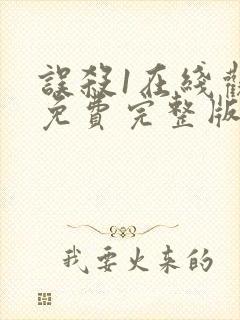 誤殺1在綫觀
免費完整版
我要火来的